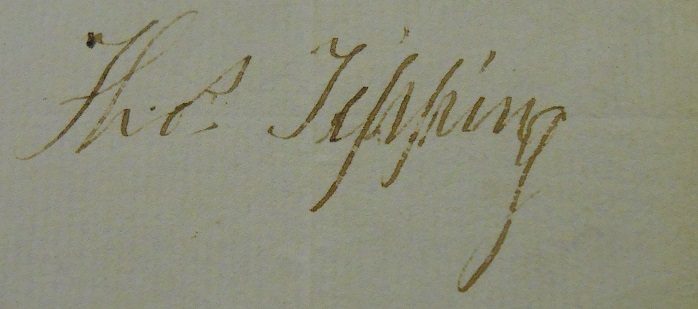 Tho.s Tipping